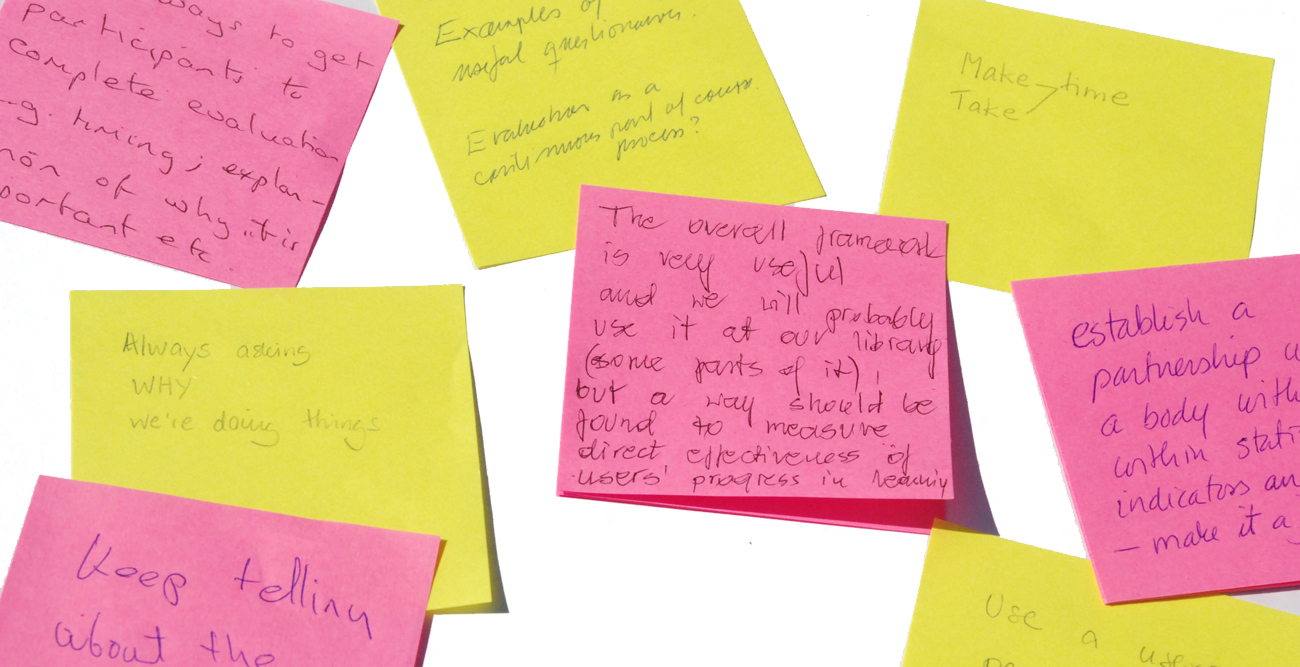 ways to get
participants to
complete evaluation
g. timing; explan-
of why it is
portant etc.
Examples of
useful questionnaires.
Evaluation as a
continuous part of course
process?
Make time
Take
The overall framework
is very useful
and we will probably
use it at our library
(some parts of it),
but a way should be
found to measure
direct effectiveness of
users' progress in reading
establish a
partnership
a body with
within stati
indicators an
– make it a
Always asking
WHY
we're doing things
Keep telling
about the
Use a